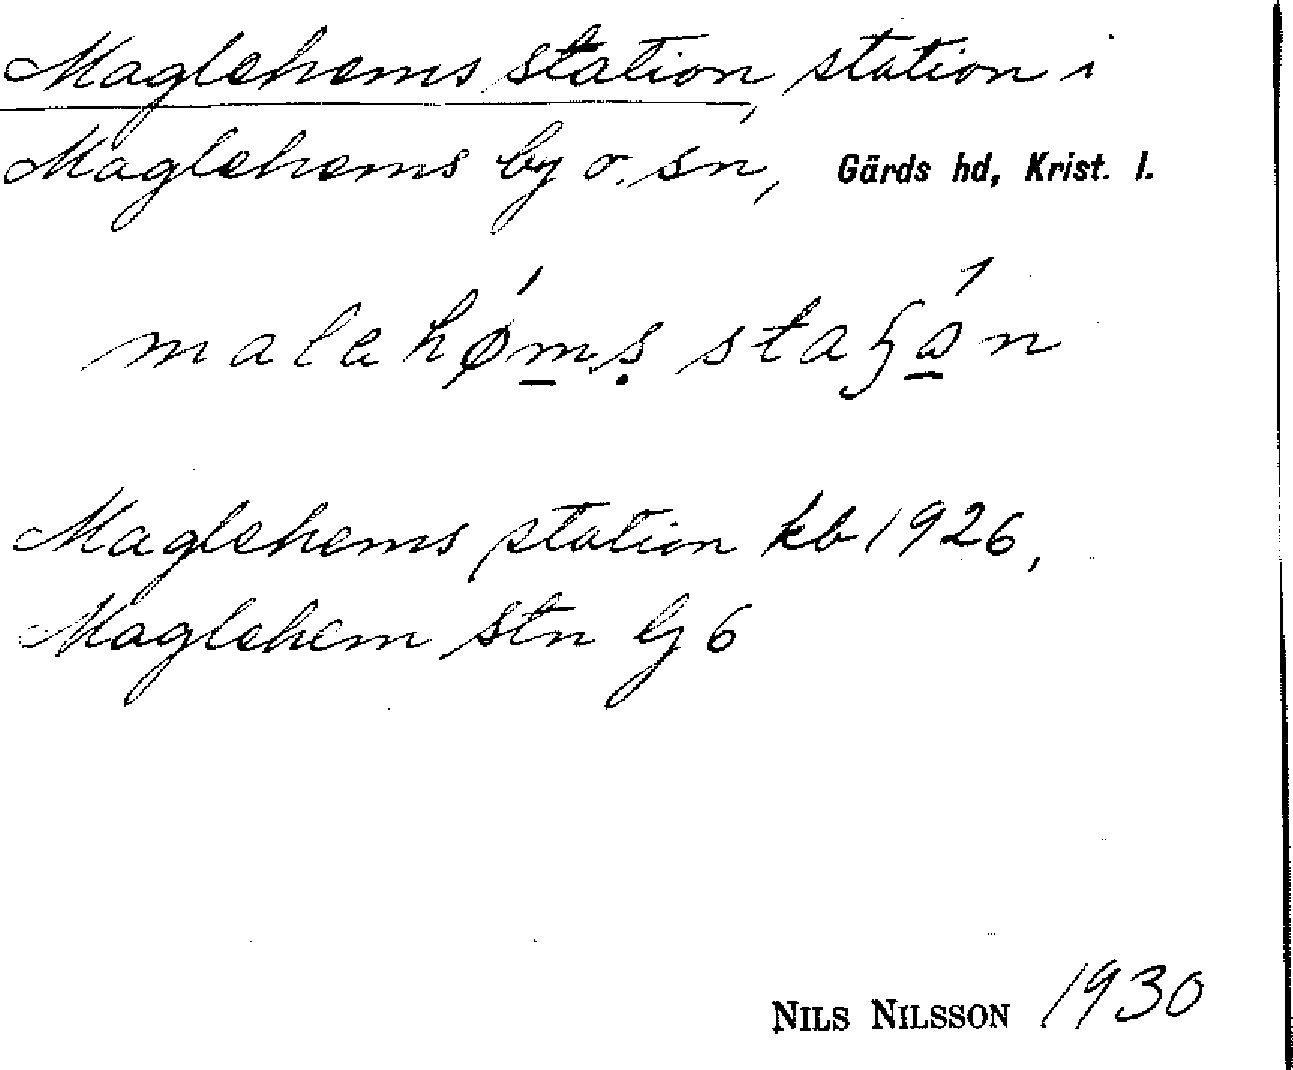 Maglehems station, station i
Maglehems by o. sn, Gärds hd, Krist. l.
malahǿm̲ṣ staʃá̲n
Maglehems station kb 1926,
Maglehem stn Gj 6
NILS NILSSON 1930